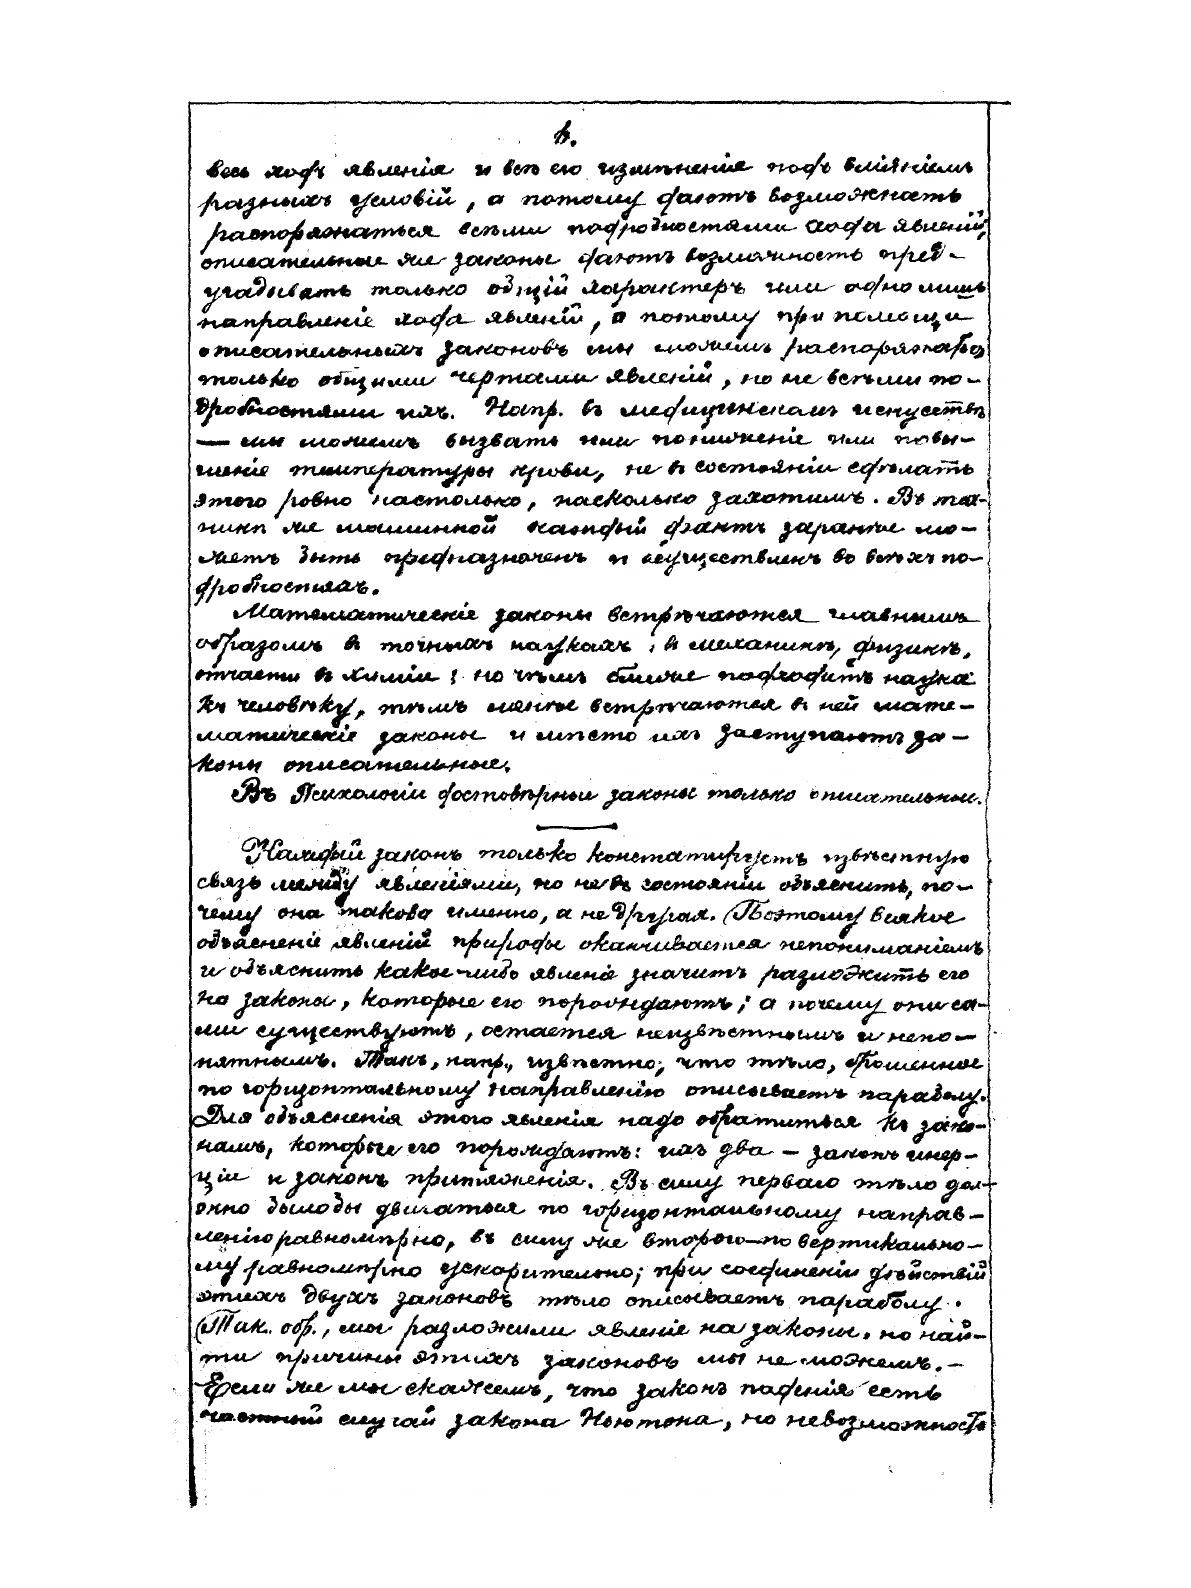 6.
весь ходъ явленія и всѣ его измѣненія подъ вліяніемъ
разныхъ условій, а потому даютъ возможность
распоряжаться всѣми подробностями хода явленій;
описательные же законы даютъ возможность пред-
угадывать только общій характеръ или одно лишь
направленіе хода явленій, а потому при помощи
описательныхъ законовъ мы можемъ распоряжаться
только общими чертами явленій, но не всѣми по-
дробностями ихъ. Напр. въ медицинскомъ искуствѣ
— мы можемъ вызвать или пониженіе или повы-
шеніе температуры крови, не въ состояніи сдѣлать
этого ровно настолько, насколько захотимъ. Въ тех-
никѣ же машинной каждый фактъ заранѣе мо-
жетъ быть предназначенъ и осуществленъ во всѣхъ по-
дробностяхъ.
Математическіе законы встрѣчаются главнымъ
образомъ въ точныхъ наукахъ: въ механикѣ, физикѣ,
отчасти въ химіи; но чѣмъ ближе подходитъ наука
къ человѣку, тѣмъ менѣе встрѣчаются въ ней мате-
матическіе законы и мѣсто ихъ заступаютъ за-
коны описательные.
Въ Психологіи достовѣрные законы только описательные.
Каждый законъ только констатируетъ извѣстную
связь между явленіями, но не въ состояніи объяснить, по-
чему она такова именно, а не другая. Поэтому всякое
объясненіе явленій природы оканчивается непониманіемъ
и объяснить какое-либо явленіе значитъ разложить его
на законы, которые его порождаютъ; а почему они са-
ми существуютъ, остается неизвѣстнымъ и непо-
нятнымъ. Такъ, напр., извѣстно, что тѣло, брошенное
по горизонтальному направленію описываетъ параболу.
Для объясненія этого явленія надо обратиться къ зако-
намъ, которые его порождаютъ: ихъ два – законъ инер-
ціи и законъ притяженія. Въ силу перваго тѣло дол-
жно былобы двигаться по горизонтальному направ-
ленію равномѣрно, въ силу же второго – по вертикально-
му равномѣрно ускорительно; при соединеніи дѣйствій
этихъ двухъ законовъ тѣло описываетъ параболу.
Так. обр., мы разложили явленіе на законы, но най-
ти причины этихъ законовъ мы не можемъ. –
Если же мы скажемъ, что законъ паденія есть
частный случай закона Ньютона, но невозможность